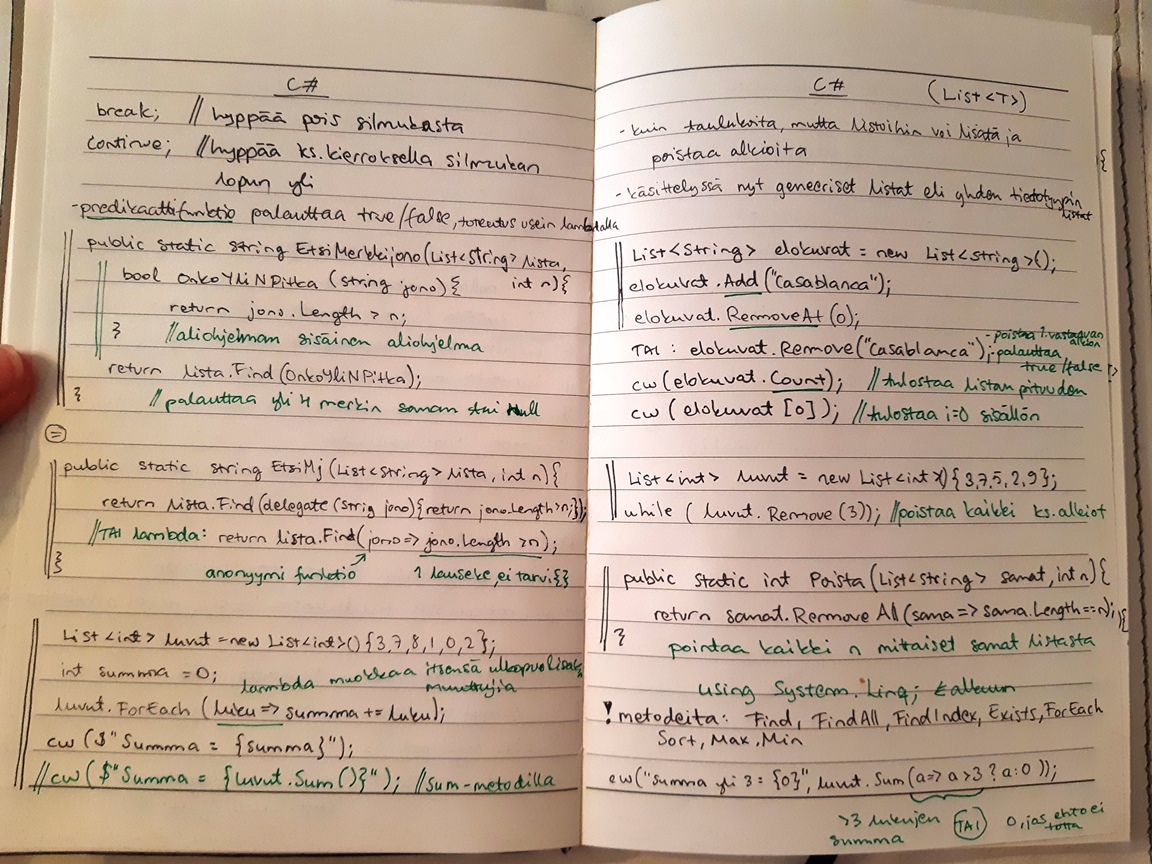 C#
break; // hyppää pois silmukasta
continue; // hyppää ks. kierroksella silmukan
lopun yli
- predikaattifunktio palauttaa true/false, toteutus usein lambdalla
public static string EtsiMerkkijono(List<String> lista,
bool OnkoYliNPitka (string jono){ int n){
return jono.Length > n;
} //aliohjelman sisäinen aliohjelma
return lista.Find(OnkoYliNPitka);
} // palauttaa yli 4 merkin sanan tai null
=
public static string EtsiMj (List<String> lista, int n){
return lista.Find(delegate (strig jono){return jono.Length>n;});
//TAI lambda: return lista.Find(jono => jono.Length >n);
} anonyymi funktio 1 lauseke, ei tarvi {}
List<int> luvut = new List<int>() {3,7,8,1,0,2};
int summa = 0; lambda muokkaa itsensä ulkopuolisia
muuttujia
luvut.ForEach (luku => summa += luku);
cw ($"Summa = {summa}");
//cw ($"Summa = {luvut.Sum()}"); //Sum-metodilla
C# (List<T>)
- kuin taulukoita, mutta listoihin voi lisätä ja
poistaa alkioita
- käsittelyssä nyt geneeriset listat eli yhden tietotyypin
listat
List<String> elokuvat = new List<String>();
elokuvat.Add("Casablanca");
elokuvat.RemoveAt(0);
- poistaa 1. vastaavan
alkion
TAI : elokuvat.Remove("Casablanca"); - palauttaa
true/false
cw (elokuvat.Count); // tulostaa listan pituuden
cw ( elokuvat [0] ); //tulostaa i=0 sisällön
List<int> luvut = new List<int>(){3,7,5,2,9};
while ( luvut.Remove (3)); //poistaa kaikki ks. alkiot
public static int Poista (List<String> sanat, int n){
return sanat.Remove All (sana => sana.Length == n);
} poistaa kaikki n mitaiset sanat listasta
using System.Linq; alkuun
! metodeita: Find, FindAll, FindIndex, Exists, ForEach
Sort, Max, Min
cw("Summa yli 3 = {0}", luvut.Sum(a=> a>3 ? a:0 ));
>3 lukujen TAI 0, jos ehto ei
summa totta